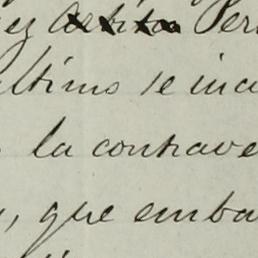 ez Per
ltimo se inc
la contrave
, que emba